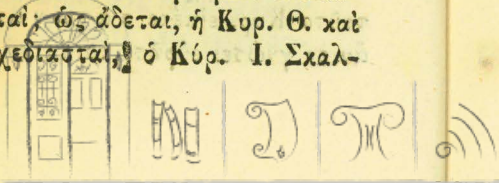 ταί; ὡς ᾄδεται, ἡ Κυρ. Θ. καὶ
χεδιασταὶ, ὁ Κύρ. Ι. Σκαλ-